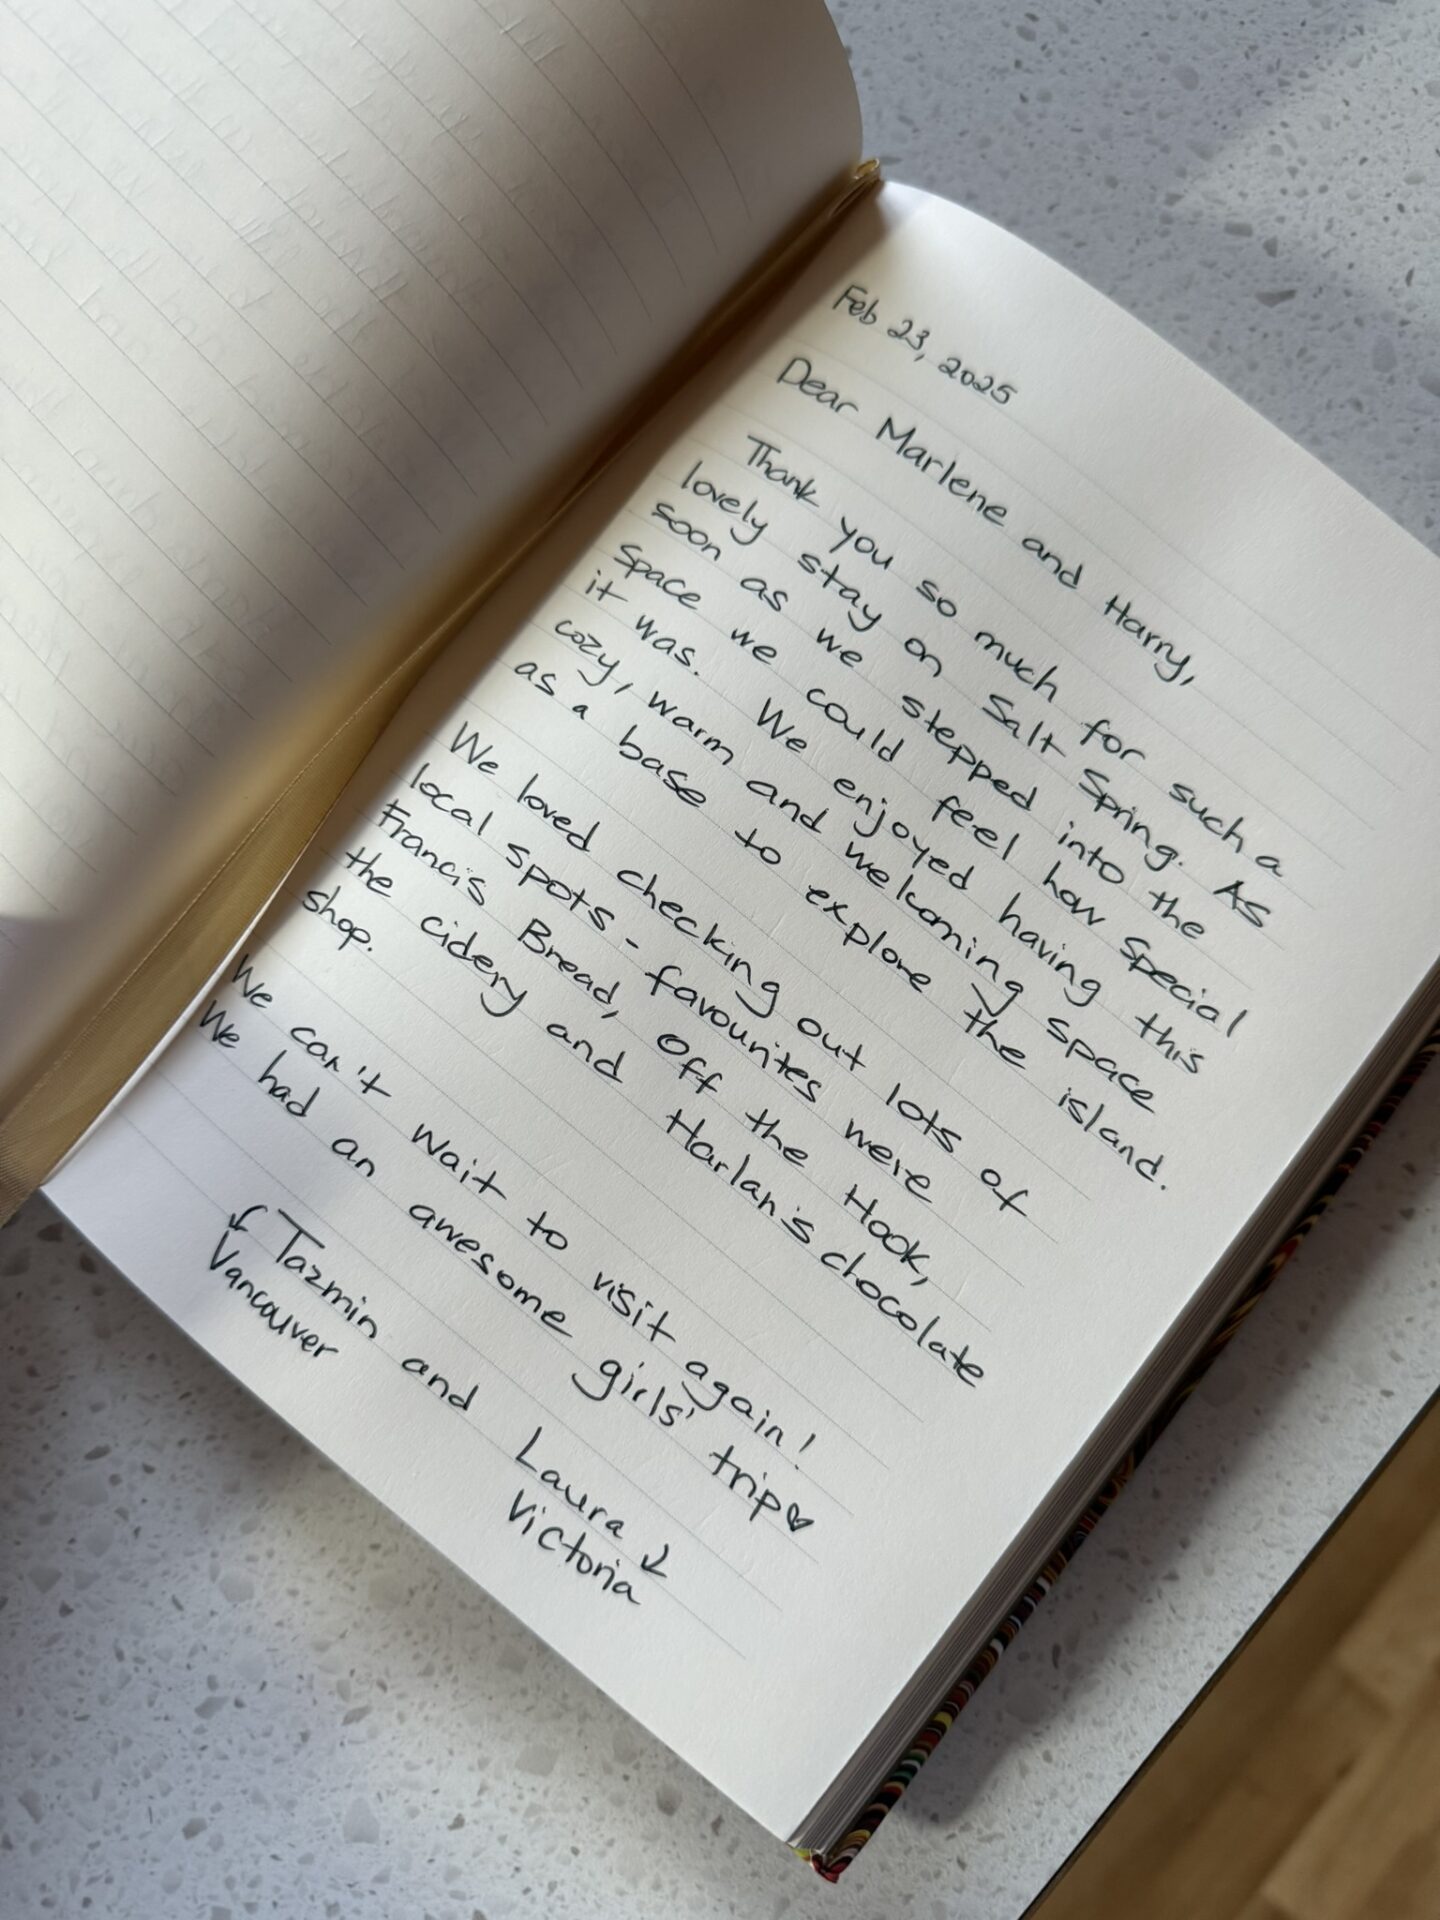 Feb 23, 2025
Dear Marlene and Harry,
Thank you so much for such a
lovely stay on Salt Spring. As
soon as we stepped into the
space we could feel how special
it was. We enjoyed having this
cozy, warm and welcoming space
as a base to explore the island.
We loved checking out lots of
local spots - favourites were
Francis Bread, Off the Hook,
the cidery and Harlan's chocolate
shop.
We can't wait to visit again!
We had an awesome girls' trip♡
↙ Tazmin and Laura ↙
Vancouver Victoria